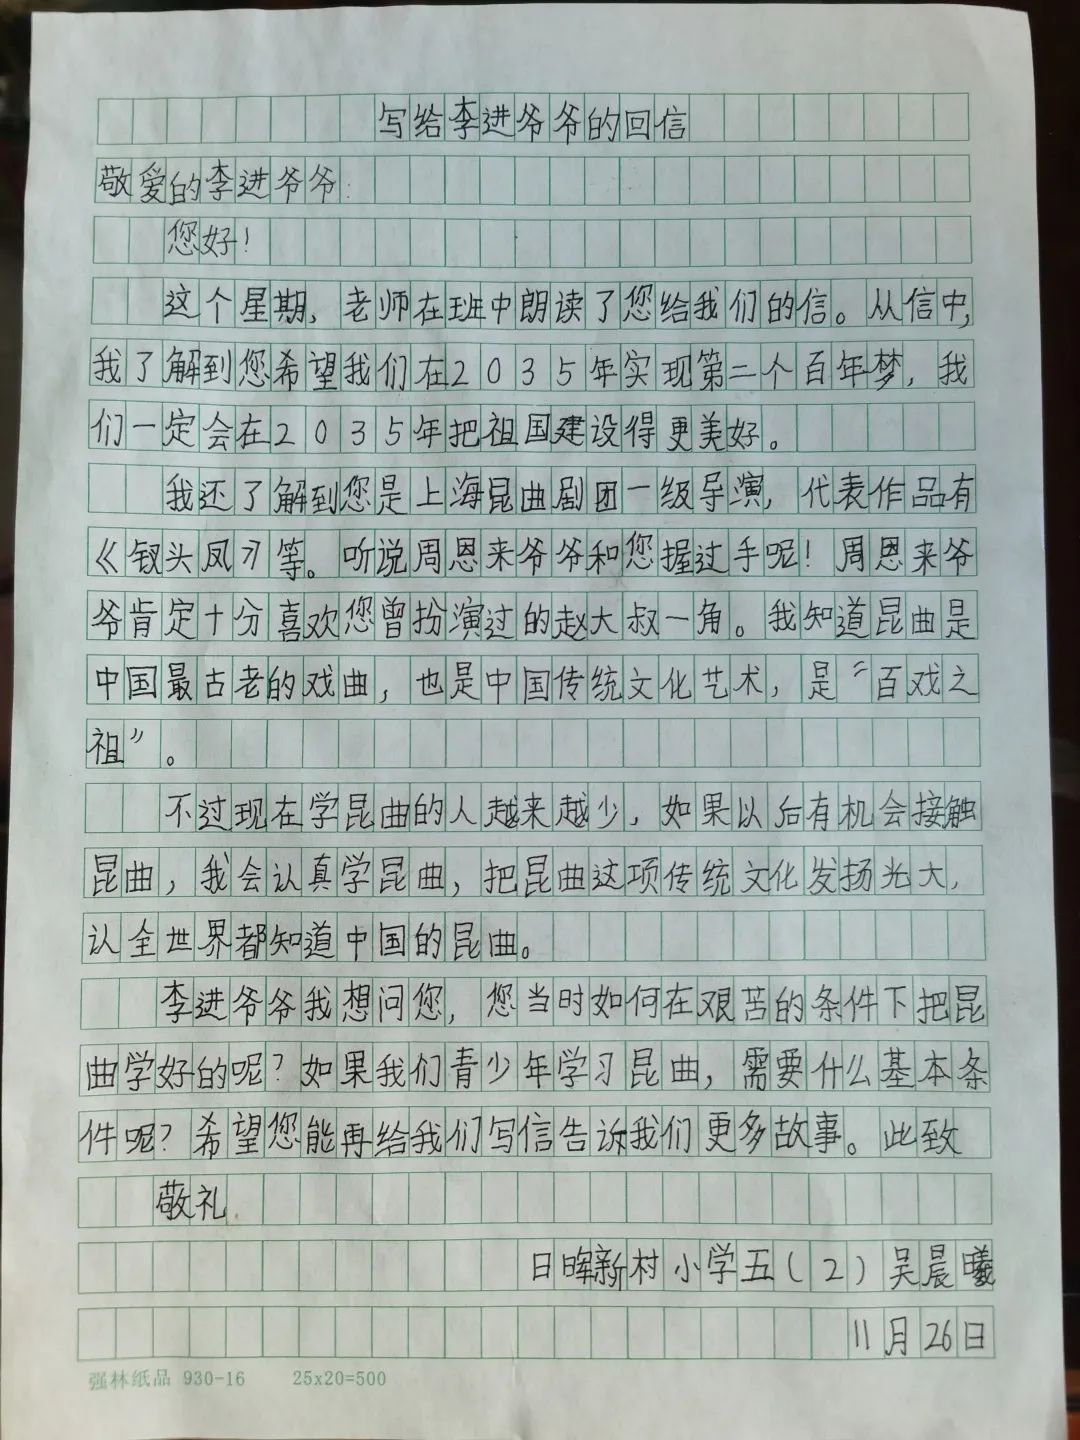 写给李进爷爷的回信
敬爱的李进爷爷:
您好!
这个星期,老师在班中朗读了您给我们的信。从信中,
我了解到您希望我们在2035年实现第二个百年梦,我
们一定会在2035年把祖国建设得更美好。
我还了解到您是上海昆曲剧团一级导演,代表作品有
《钗头凤》等。听说周恩来爷爷和您握过手呢!周恩来爷
爷肯定十分喜欢您曾扮演过的赵大叔一角。我知道昆曲是
中国最古老的戏曲,也是中国传统文化艺术,是“百戏之
祖”。
不过现在学昆曲的人越来越少,如果以后有机会接触
昆曲,我会认真学昆曲,把昆曲这项传统文化发扬光大,
认全世界都知道中国的昆曲。
李进爷爷我想问您,您当时如何在艰苦的条件下把昆
曲学好的呢?如果我们青少年学习昆曲,需要什么基本条
件呢?希望您能再给我们写信告诉我们更多故事。此致
敬礼.
日晖新村小学五(2)吴晨曦
11月26日
强林纸品 930-16 25x20=500